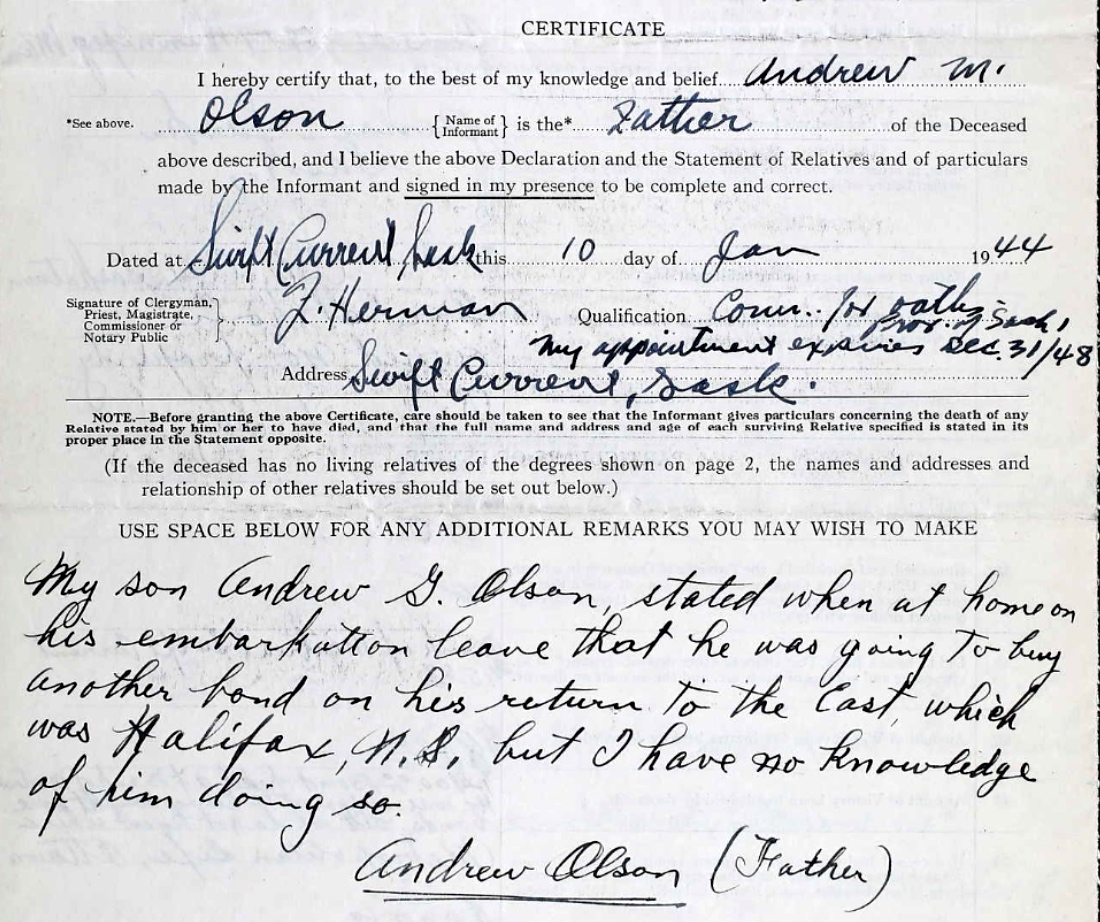 CERTIFICATE
I hereby certify that, to the best of my knowledge and belief Andrew M.
*See above. Olson { Name of Informant } is the* Father of the Deceased
above described, and I believe the above Declaration and the Statement of Relatives and of particulars
made by the Informant and signed in my presence to be complete and correct.
Dated at Swift Current, Sask this 10 day of Jan 1944
Signature of Clergyman, Priest, Magistrate, Commissioner or Notary Public } Z. Herman Qualification Comm. for oaths
Prov. of Sask,
my appointment expires Dec. 31/48
Address Swift Current, Sask.
NOTE.—Before granting the above Certificate, care should be taken to see that the Informant gives particulars concerning the death of any
Relative stated by him or her to have died, and that the full name and address and age of each surviving Relative specified is stated in its
proper place in the Statement opposite.
(If the deceased has no living relatives of the degrees shown on page 2, the names and addresses and
relationship of other relatives should be set out below.)
USE SPACE BELOW FOR ANY ADDITIONAL REMARKS YOU MAY WISH TO MAKE
My son Andrew G. Olson, stated when at home on
his embarkation leave that he was going to buy
another bond on his return to the East, which
was Halifax, N.S, but I have no knowledge
of him doing so.
Andrew Olson (Father)